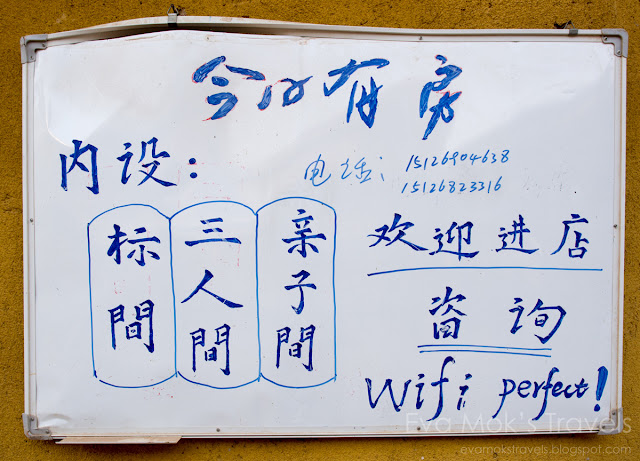 今日有房
内设：
电话：15126904638
15126823316
标間
三人間
亲子間
欢迎进店
咨询
Wifi perfect!
Eva Mok's Travels
evamokstravels.blogspot.com